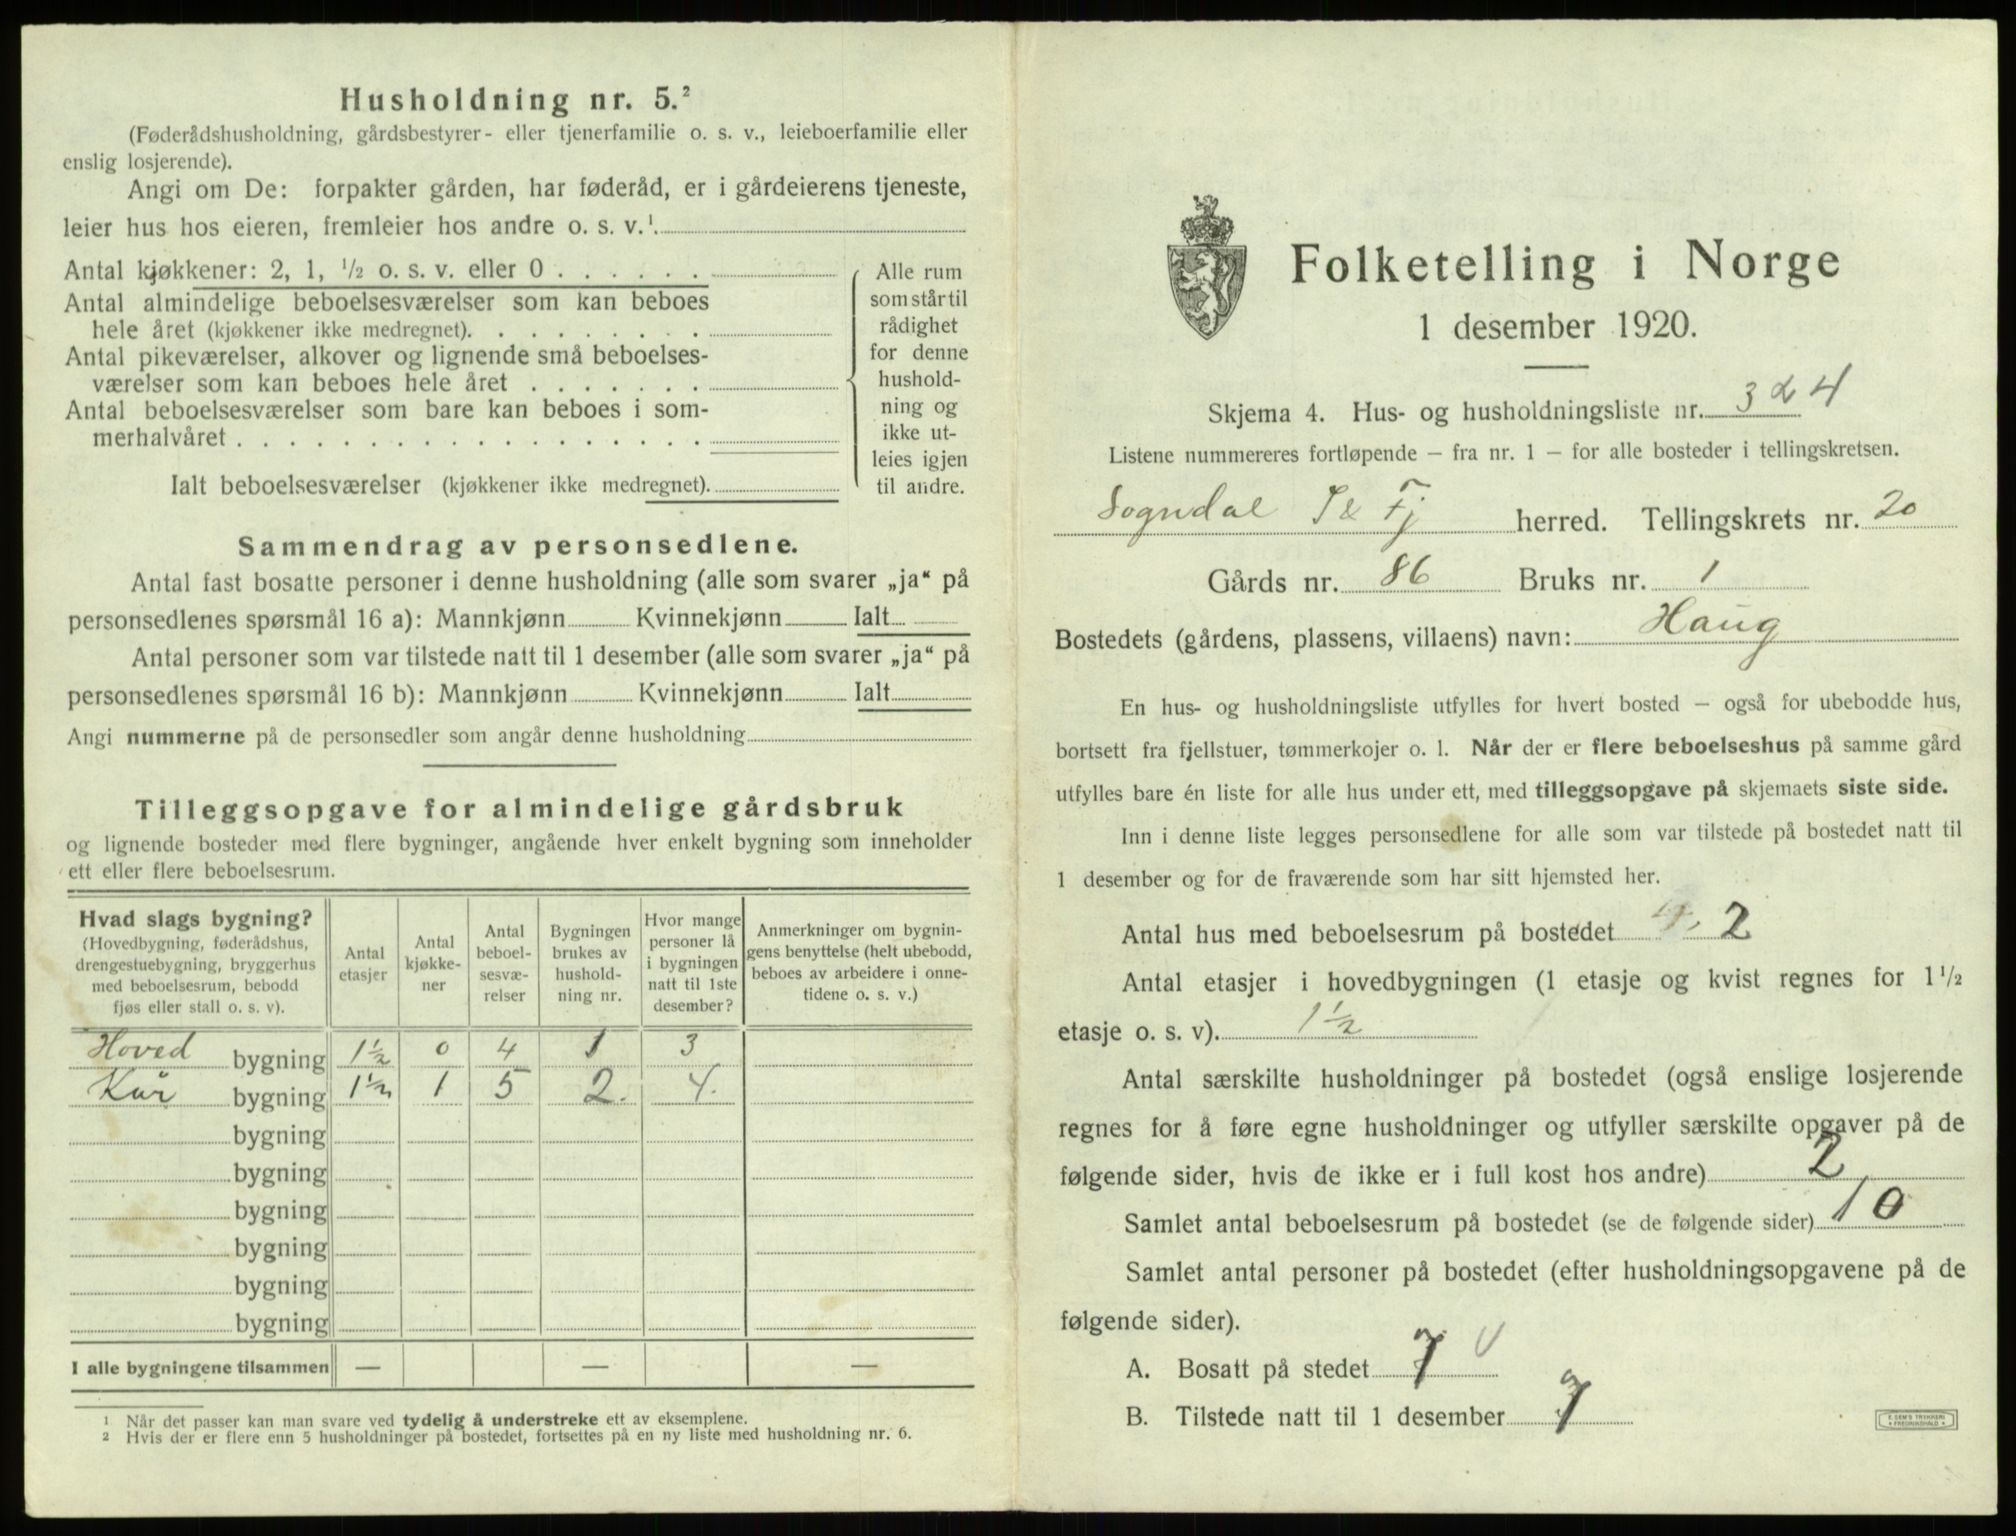 Husholdning nr. 5.²
(Føderådshusholdning, gårdsbestyrer- eller tjenerfamilie o. s. v., leieboerfamilie eller
enslig losjerende).
Angi om De: forpakter gården, har føderåd, er i gårdeierens tjeneste,
leier hus hos eieren, fremleier hos andre o. s. v.¹
Antal kjøkkener: 2, 1, ½ o. s. v. eller 0
Antal almindelige beboelsesværelser som kan beboes
hele året (kjøkkener ikke medregnet).
Antal pikeværelser, alkover og lignende små beboelses-
værelser som kan beboes hele året
Antal beboelsesværelser som bare kan beboes i som-
merhalvåret
Ialt beboelsesværelser (kjøkkener ikke medregnet).
Alle rum
som står til
rådighet
for denne
hushold-
ning og
ikke ut-
leies igjen
til andre.
Sammendrag av personsedlene.
Antal fast bosatte personer i denne husholdning (alle som svarer „ja“ på
personsedlenes spørsmål 16 a): Mannkjønn Kvinnekjønn Ialt
Antal personer som var tilstede natt til 1 desember (alle som svarer „ja“ på
personsedlenes spørsmål 16 b): Mannkjønn Kvinnekjønn Ialt
Angi nummerne på de personsedler som angår denne husholdning
Tilleggsopgave for almindelige gårdsbruk
og lignende bosteder med flere bygninger, angående hver enkelt bygning som inneholder
ett eller flere beboelsesrum.
Hvad slags bygning?
(Hovedbygning, føderådshus,
drengestuebygning, bryggerhus
med beboelsesrum, bebodd
fjøs eller stall o. s. v).
Antal
etasjer
Antal
kjøkke-
ner
Antal
beboel-
sesvæ-
relser
Bygningen
brukes av
hushold-
ning nr.
Hvor mange
personer lå
i bygningen
natt til 1ste
desember?
Anmerkninger om bygnin-
gens benyttelse (helt ubebodd,
beboes av arbeidere i onne-
tidene o. s. v.)
Hoved bygning 1½ 0 4 1 3
Kår bygning 1½ 1 5 2. 4.
bygning
bygning
bygning
bygning
bygning
bygning
I alle bygningene tilsammen — — —
¹ Når det passer kan man svare ved tydelig å understreke ett av eksemplene.
² Hvis der er flere enn 5 husholdninger på bostedet, fortsettes på en ny liste med husholdning nr. 6.
Folketelling i Norge
1 desember 1920.
Skjema 4. Hus- og husholdningsliste nr. 324
Listene nummereres fortløpende — fra nr. 1 — for alle bosteder i tellingskretsen.
Sogndal S & Fj herred. Tellingskrets nr. 20
Gårds nr. 86 Bruks nr. 1
Bostedets (gårdens, plassens, villaens) navn: Haug
En hus- og husholdningsliste utfylles for hvert bosted — også for ubebodde hus,
bortsett fra fjellstuer, tømmerkojer o. l. Når der er flere beboelseshus på samme gård
utfylles bare én liste for alle hus under ett, med tilleggsopgave på skjemaets siste side.
Inn i denne liste legges personsedlene for alle som var tilstede på bostedet natt til
1 desember og for de fraværende som har sitt hjemsted her.
Antal hus med beboelsesrum på bostedet 2
Antal etasjer i hovedbygningen (1 etasje og kvist regnes for 1½
etasje o. s. v). 1½
Antal særskilte husholdninger på bostedet (også enslige losjerende
regnes for å føre egne husholdninger og utfyller særskilte opgaver på de
følgende sider, hvis de ikke er i full kost hos andre) 2
Samlet antal beboelsesrum på bostedet (se de følgende sider) 10
Samlet antal personer på bostedet (efter husholdningsopgavene på de
følgende sider).
A. Bosatt på stedet 7
B. Tilstede natt til 1 desember 7
E. SEM'S TRYKKERI
FREDRIKSHALD